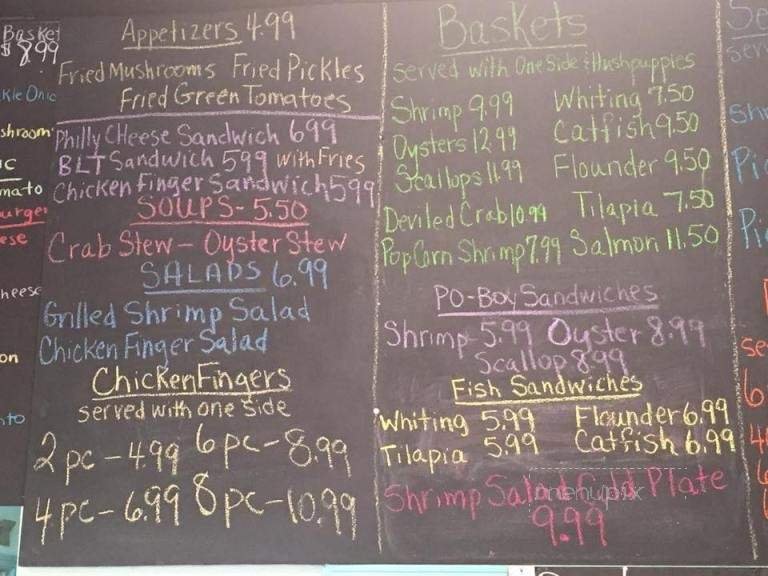 Basket
$8.99
kle Onic
shroom
mato
urger
ese
heese
on
nto
Appetizers 4.99
Fried Mushrooms Fried Pickles
Fried Green Tomatoes
Philly CHeese Sandwich 699
BLT Sandwich 599 with Fries
Chicken Finger Sandwich 599
SOUPS- 5.50
Crab Stew - Oyster Stew
SALADS 6.99
Grilled Shrimp Salad
Chicken Finger Salad
Chicken Fingers
served with one side
2 pc - 4.99 6 pc - 8.99
4 pc - 6.99 8 pc - 10.99
Baskets
served with One Side & Hushpuppies
Shrimp 9.99 Whiting 7.50
Oysters 12.99 Catfish 9.50
Scallops 11.99 Flounder 9.50
Deviled Crab 10.99 Tilapia 7.50
PopCorn Shrimp 7.99 Salmon 11.50
PO-Boy Sandwiches
Shrimp 5.99 Oyster 8.99
Scallop 8.99
Fish Sandwiches
Whiting 5.99 Flounder 6.99
Tilapia 5.99 Catfish 6.99
Shrimp Salad Cold Plate
9.99
Se
serv
Shr
Pic
Pic
se